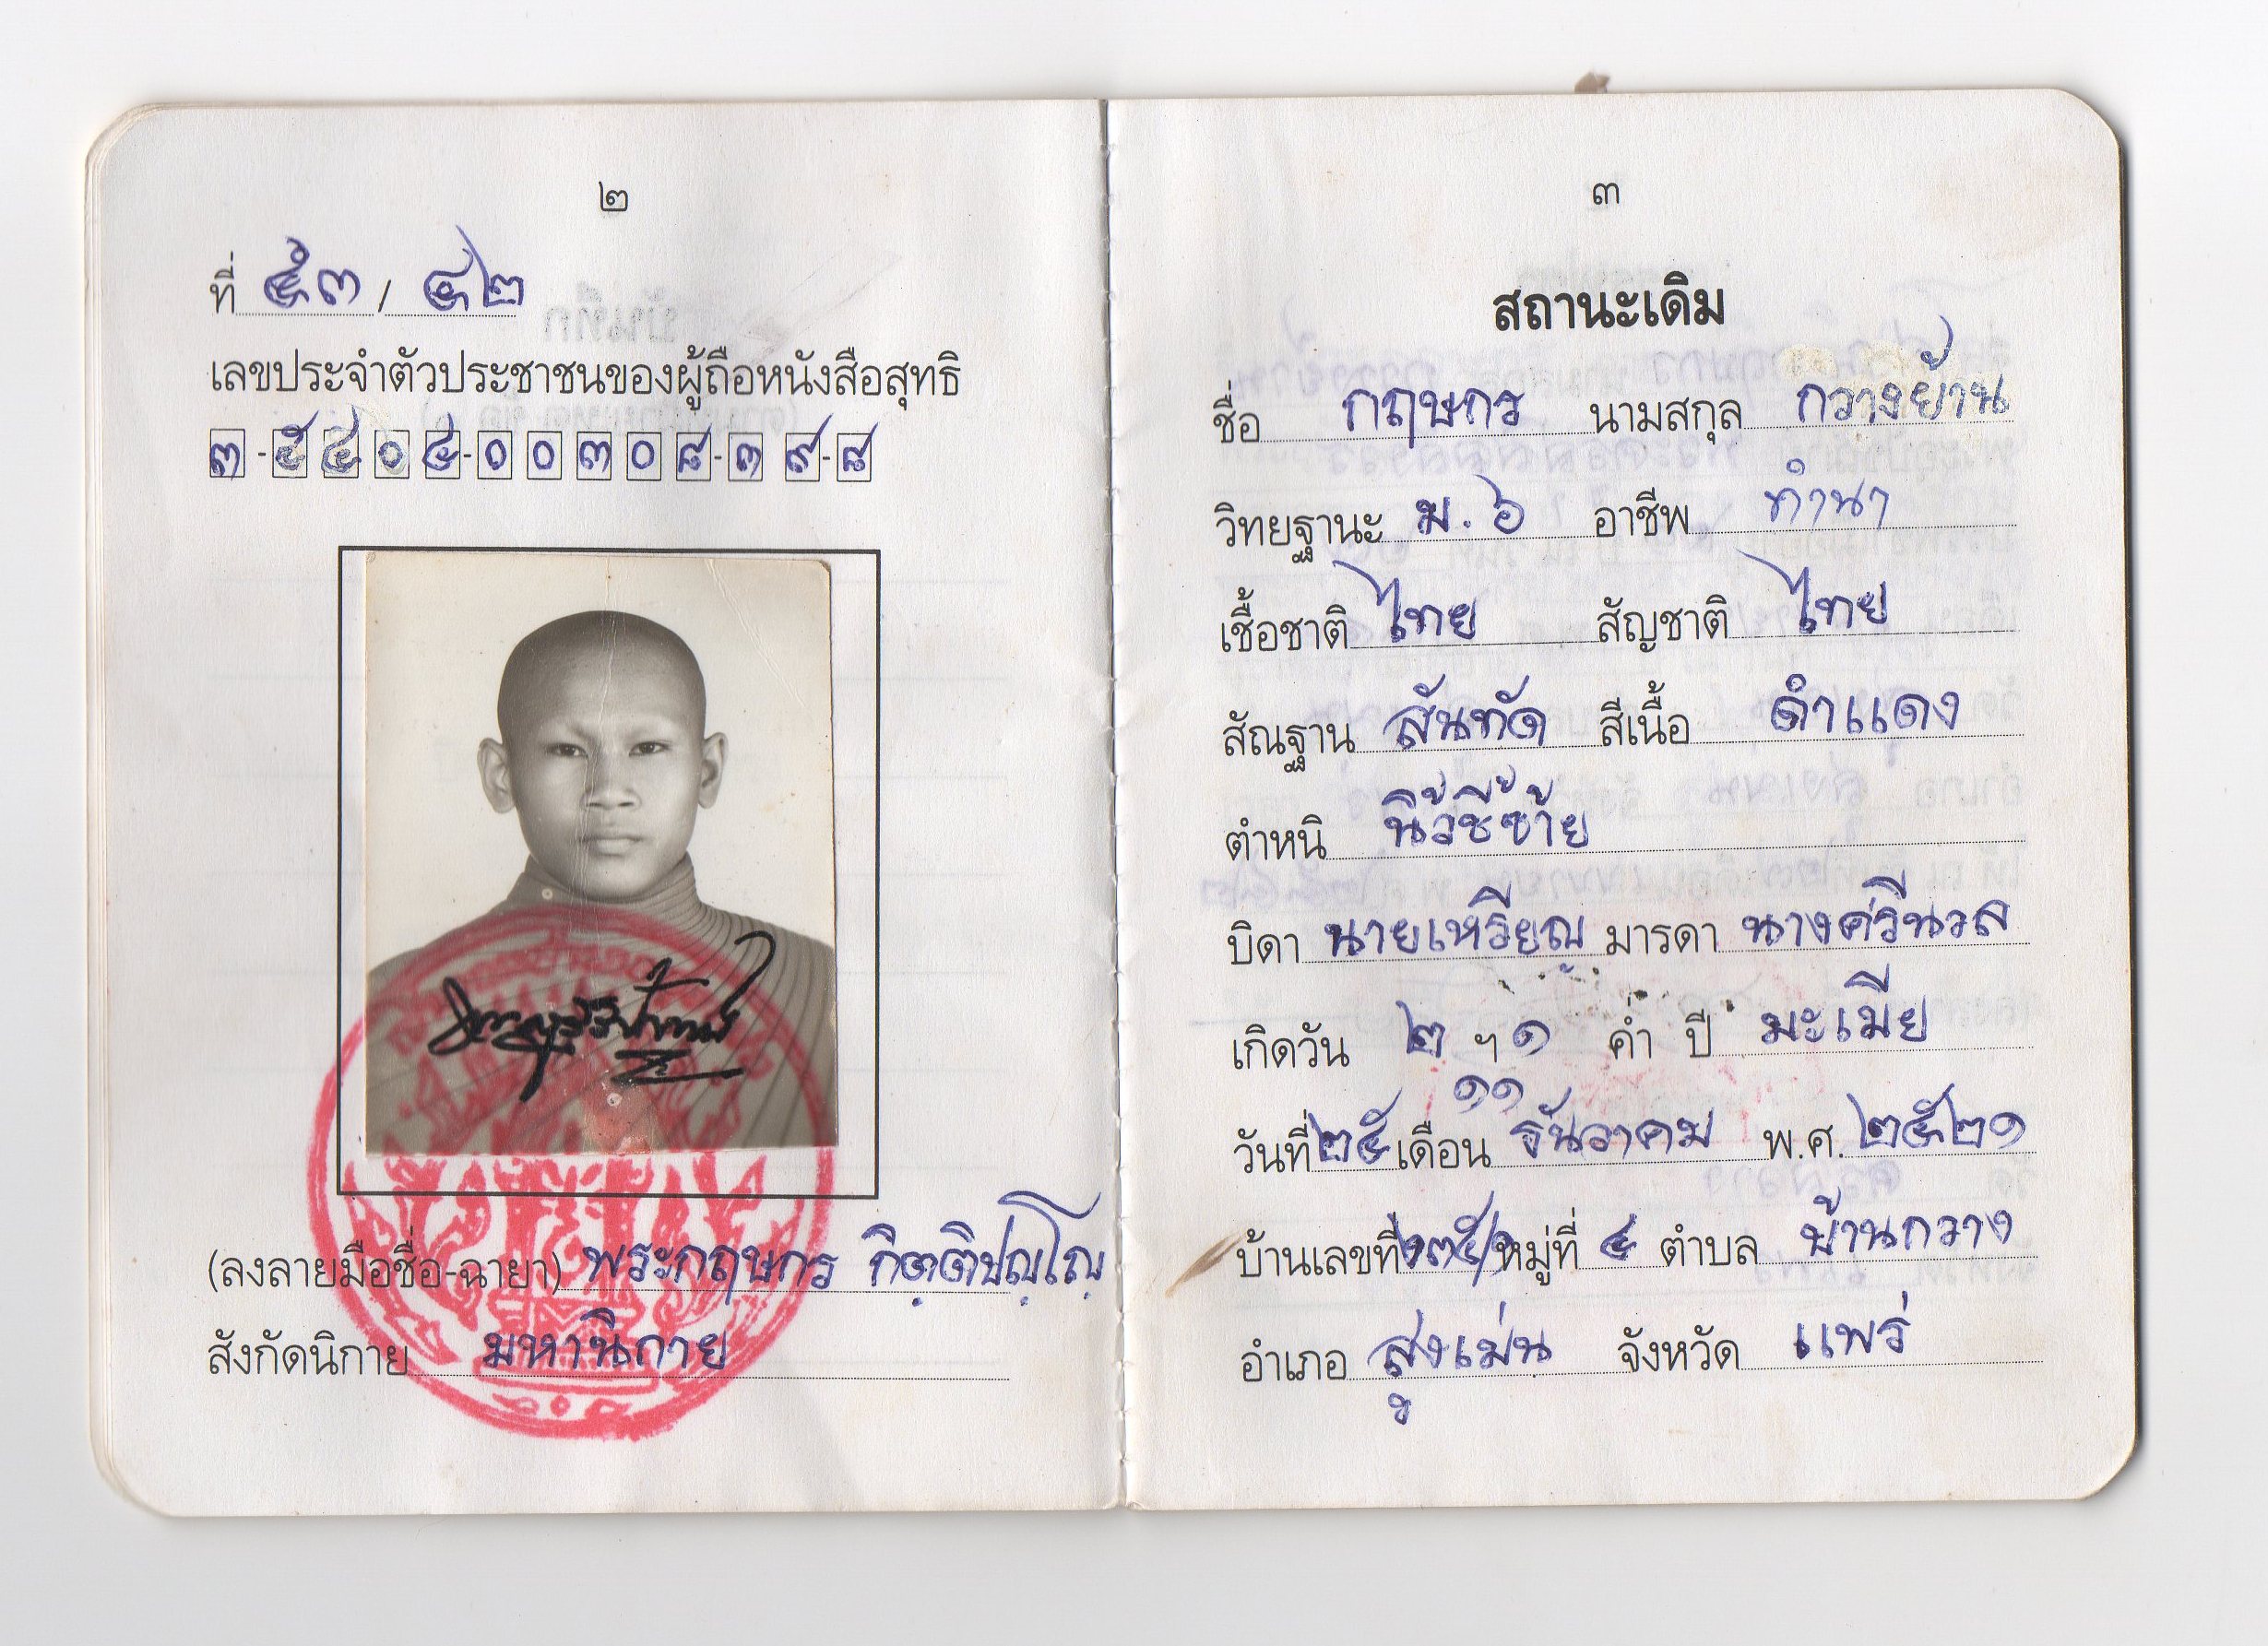 ๒
ที่ ๕๓ / ๔๒
เลขประจำตัวประชาชนของผู้ถือหนังสือสุทธิ
๓-๕๔๐๔-๐๐๓๐๘-๓๙-๘
(ลงลายมือชื่อ-ฉายา) พระกฤษกร กิตฺติปญฺโญ
สังกัดนิกาย มหานิกาย
๓
สถานะเดิม
ชื่อ กฤษกร นามสกุล กวางย้าน
วิทยฐานะ ม.๖ อาชีพ ทำนา
เชื้อชาติ ไทย สัญชาติ ไทย
สัณฐาน สันทัด สีเนื้อ ดำแดง
ตำหนิ นิ้วชี้ซ้าย
บิดา นายเหรียญ มารดา นางศรีนวล
เกิดวัน ๒ ฯ ๑ ค่ำ ปี มะเมีย
๑๑
วันที่ ๒๕ เดือน ธันวาคม พ.ศ. ๒๕๒๑
บ้านเลขที่ หมู่ที่ ๔ ตำบล บ้านกวาง
อำเภอ สูงเม่น จังหวัด แพร่